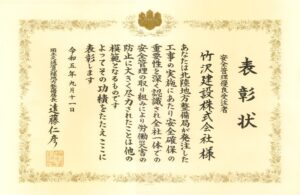 表彰状
安全管理優良受注者
竹沢建設株式会社様
あなたは北陸地方整備局が発注した
工事の実施にあたり安全確保の
重要性を深く認識され会社一体での
安全管理の取り組みにより労働災害の
防止に大きく尽力されたことは他の
模範となるものです
よってその功績をたたえここに
表彰します
令和五年九月十一日
国土交通省北陸地方整備局長 遠藤仁彦